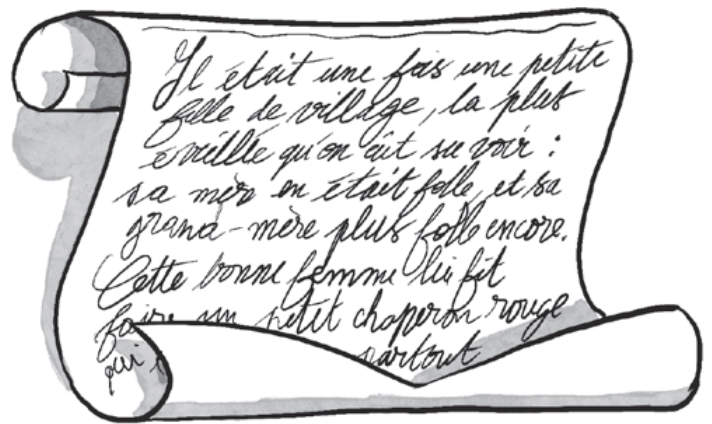 Il était une fois une petite
fille de village, la plus
éveillée qu'on eût su voir :
sa mère en était folle, et sa
grand-mère plus folle encore.
Cette bonne femme lui fit
faire un petit chaperon rouge
qui partout